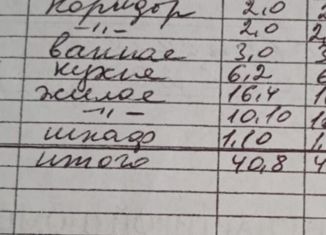 коридор 2,0
-,,- 2,0 2
ванная 3,0 3
кухня 6,2 6
жилое 16,4 1
-,,- 10,10 1
шкаф 1,10 1,
итого 40,8 4